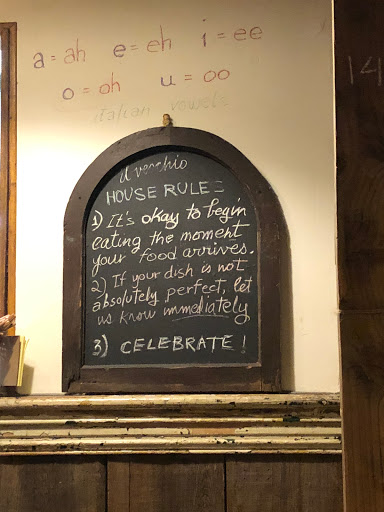 a = ah e = eh i = ee
o = oh u = oo
italian vowels
il vecchio
HOUSE RULES
1) It's okay to begin
eating the moment
your food arrives.
2) If your dish is not
absolutely perfect, let
us know immediately
3) CELEBRATE!
14